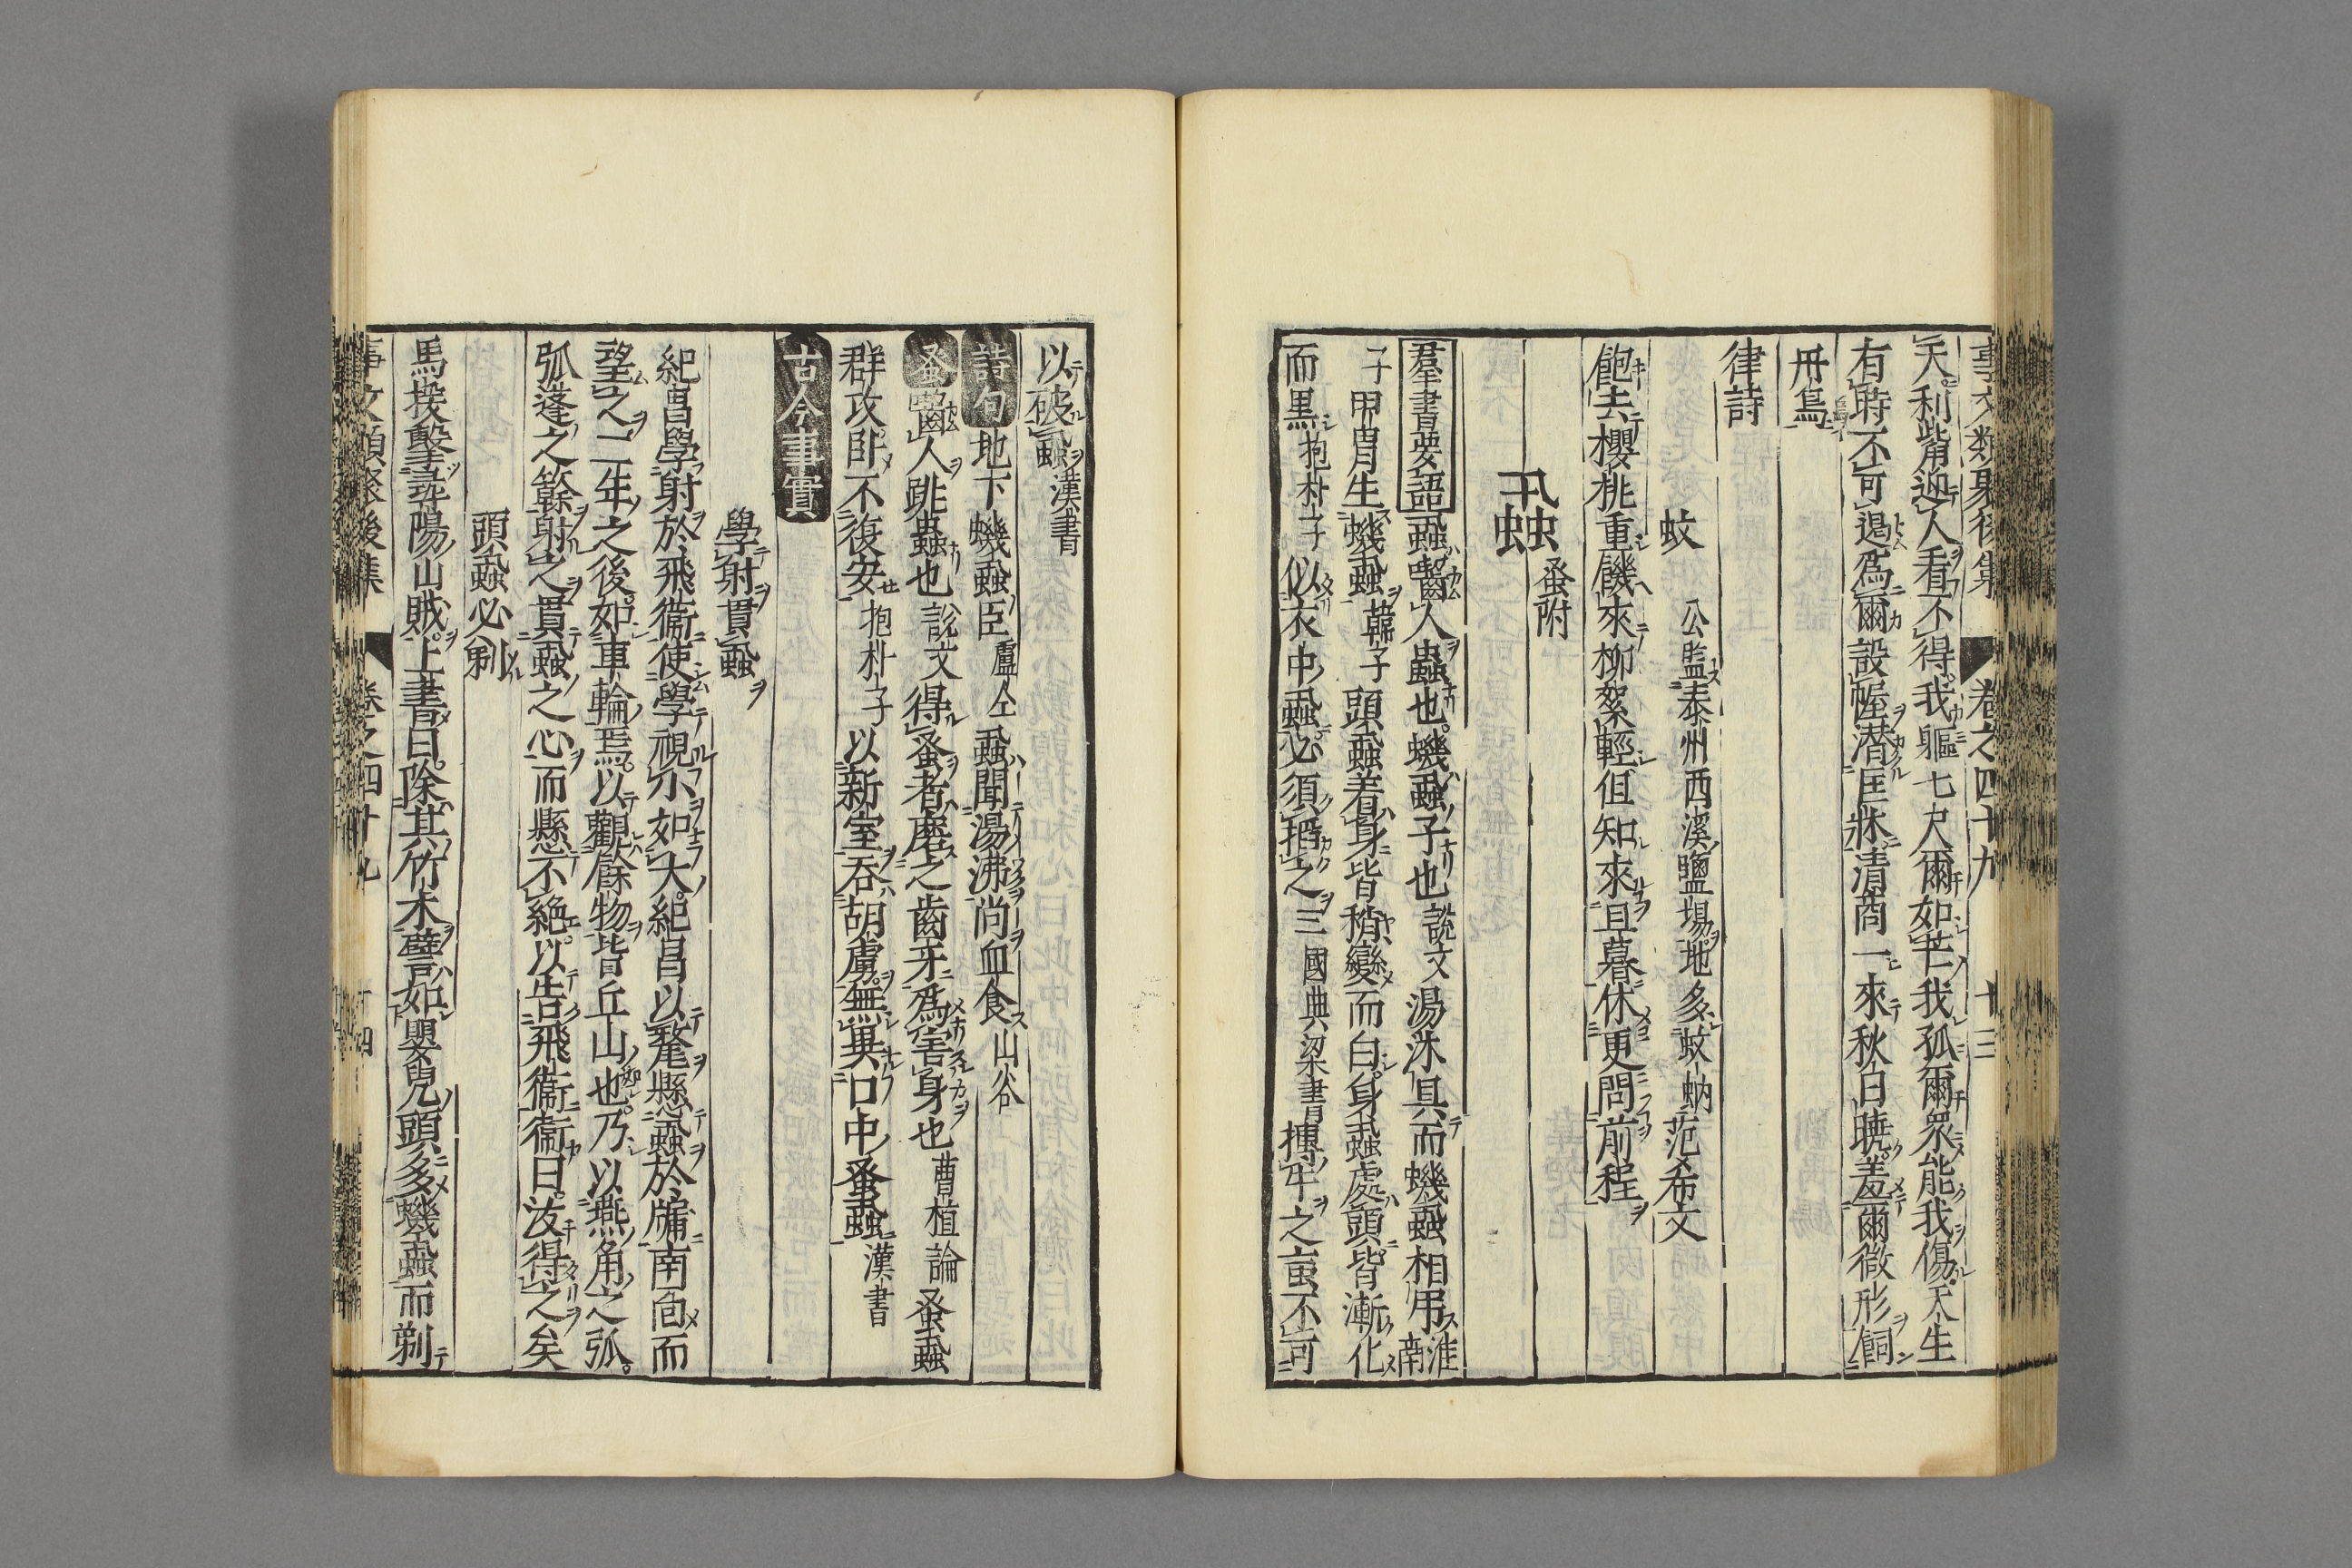 事文類聚後集 卷之四十九 十三
天利觜迎人看不得我軀七尺爾如芒我孤爾衆能我傷天生
有時不可遏爲爾設幄潜匡牀清商一來秋日曉羞爾微形飼
丹鳥
律詩
蚊 公監泰州西溪鹽場地多蚊蚋 范希文
飽去櫻桃重饑來柳絮輕但知來旦暮休更問前程
虱 蚤附
羣書要語 虱齧人蟲也蟣虱子也 說文 湯沐具而蟣虱相弔 淮南
子 甲胄生蟣虱 韓子 頭虱着身皆稍變而白身虱處頭皆漸化
而黒 抱朴子 似衣中虱必須搯之 三國典梁書 搏牛之䖟不可
以破虱 漢書
詩句 地下蟣虱臣 盧仝 虱聞湯沸尚血食 山谷
蚤 齧人跳蟲也 說文 得蚤者磨之齒牙爲害身也 曹植論 蚤虱
群攻卧不復安 抱朴子 以新室吞胡虜無異口中蚤虱 漢書
古今事實
學射貫虱
紀昌學射於飛衞使學視小如大紀昌以氂懸虱於牖南面而
望之二年之後如車輪焉以觀餘物皆丘山也乃以燕角之弧
弧蓬之簳射之貫虱之心而懸不絶以告飛衞衞曰汝得之矣
頭虱必剃
馬援擊尋陽山賊上書曰除其竹木譬如嬰兒頭多蟣虱而剃
事文類聚後集 卷之四十九 十四